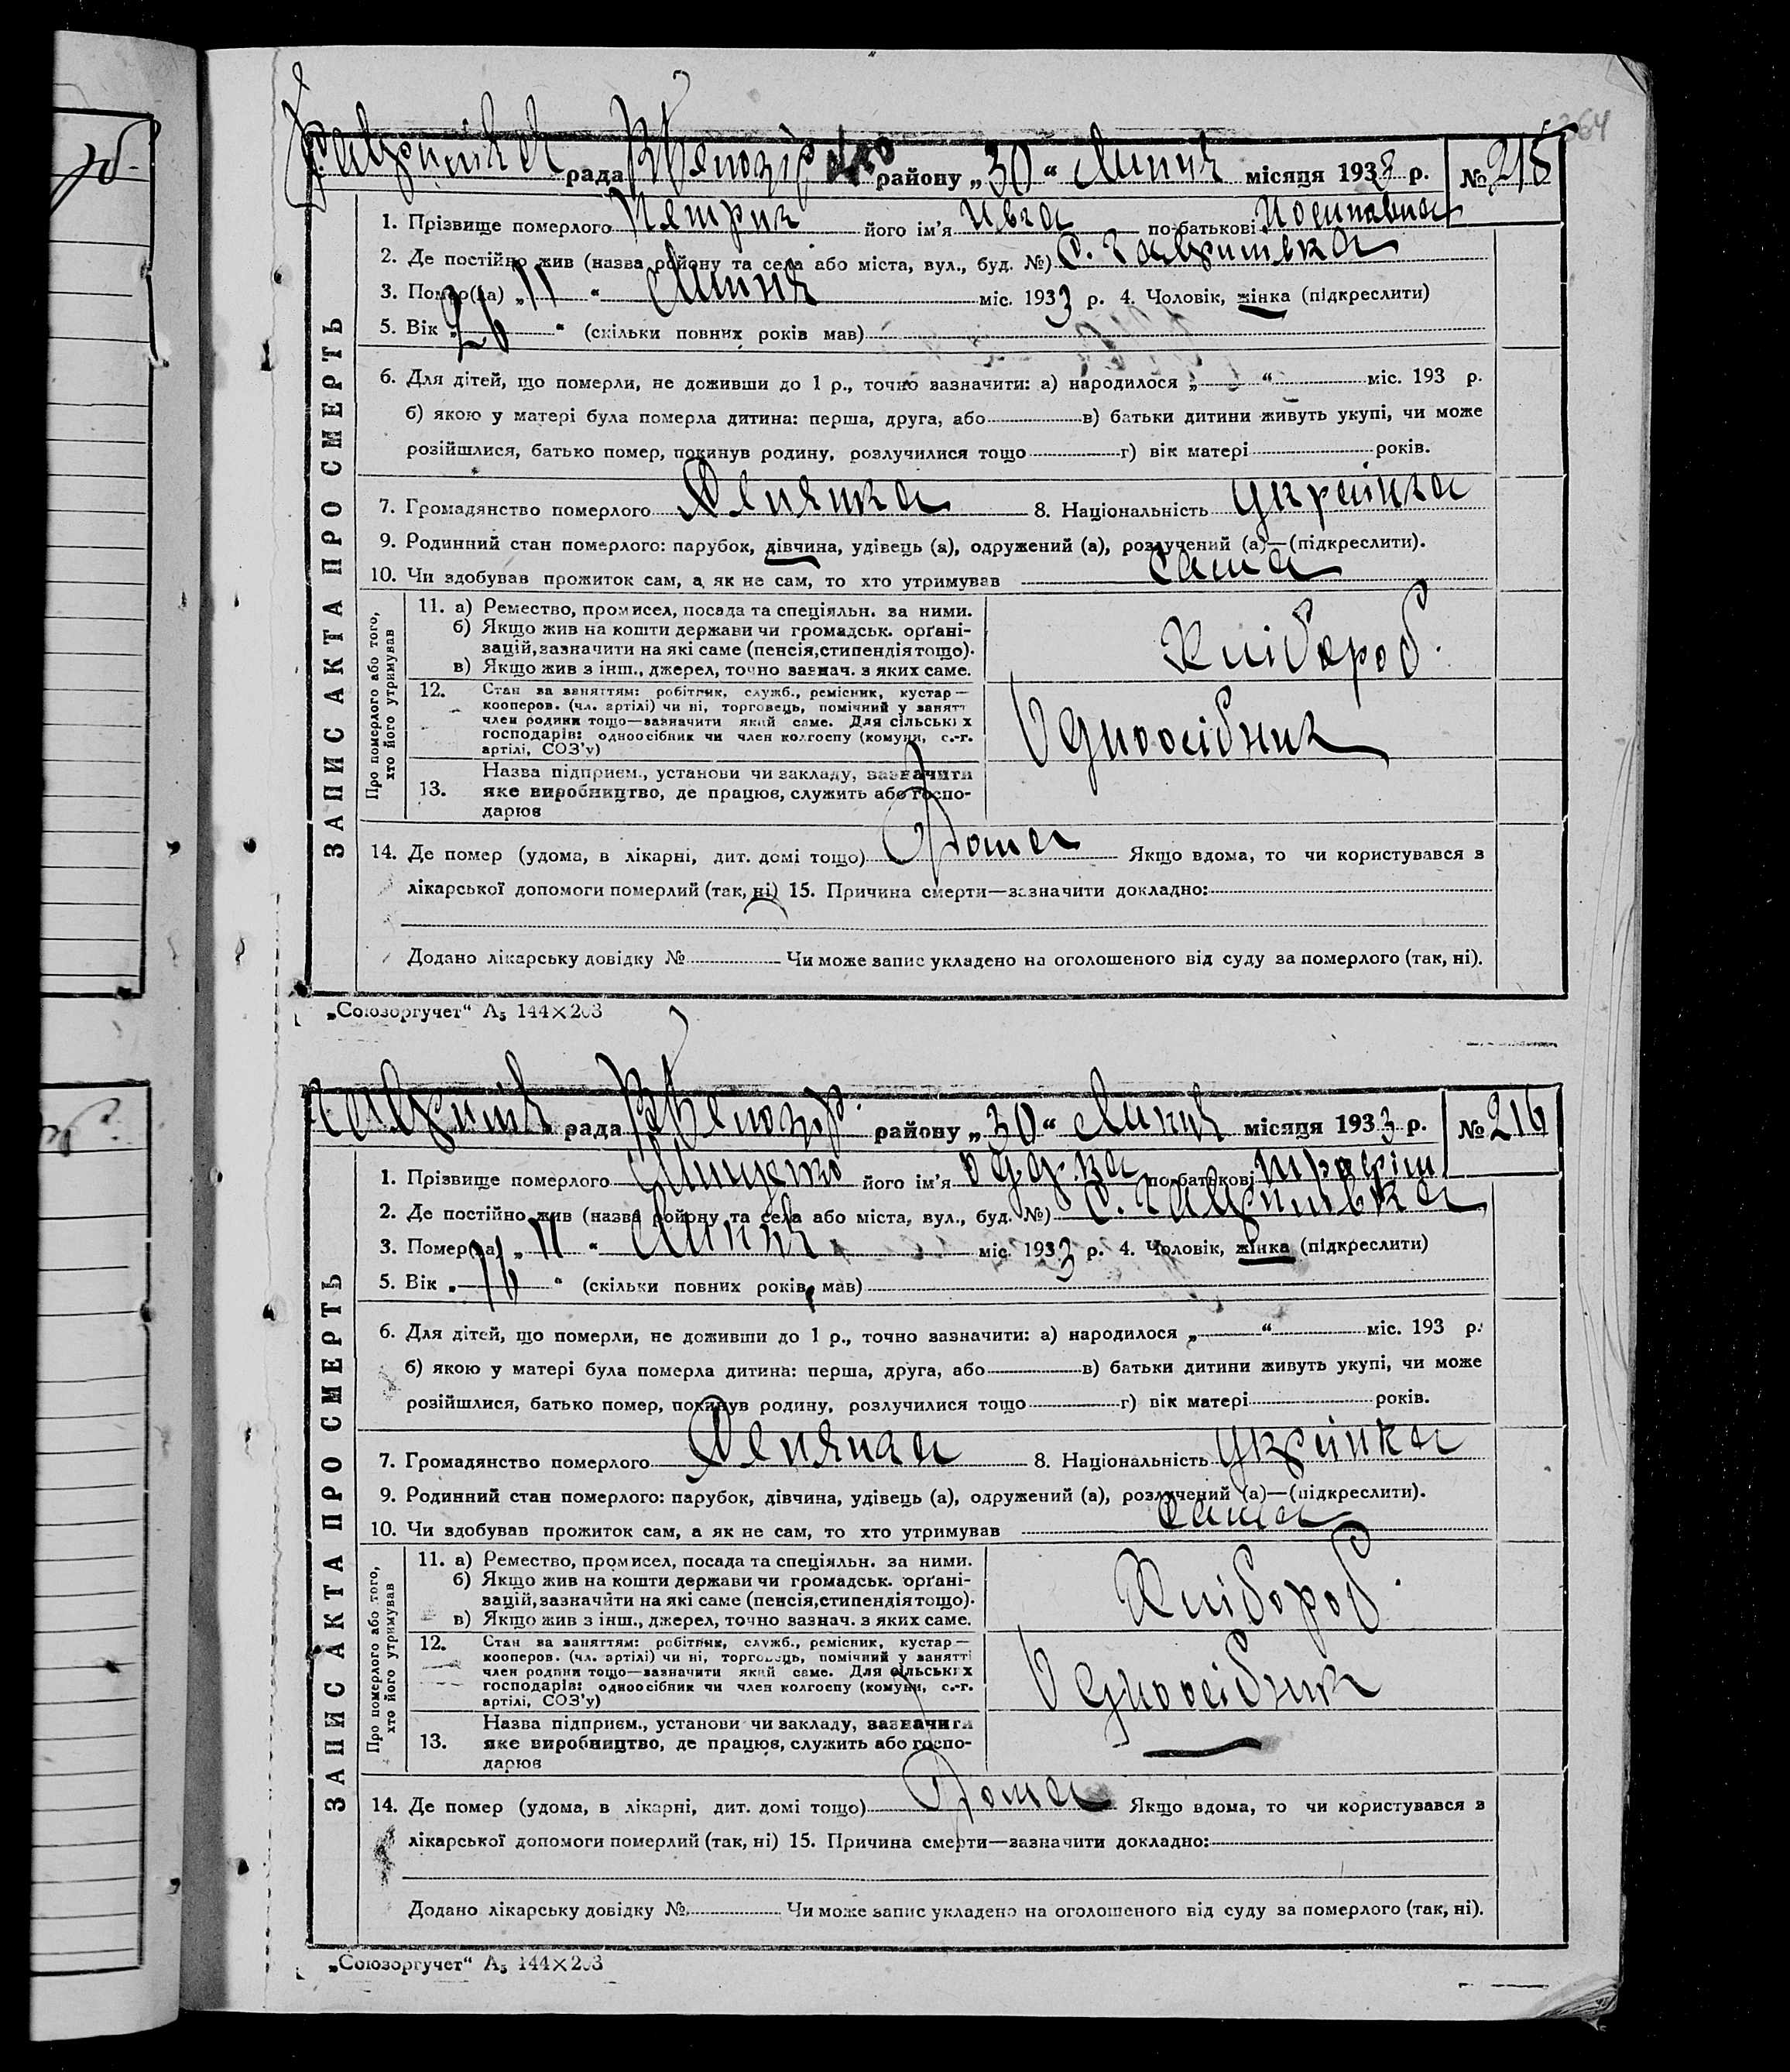 364
рада району „30“ Липня місяця 1933 р. № 215
1. Прізвище померлого Петрик його ім'я Ивга по-батькові Йосиповна
2. Де постійно жив (назва району та села або міста, вул., буд. №) С. Гавришівка
3. Помер(ла) „11“ Липня міс. 1933 р. 4. Чоловік, жінка (підкреслити)
5. Вік „ “ (скільки повних років мав)
6. Для дітей, що померли, не доживши до 1 р., точно зазначити: а) народилося „ “ міс. 193 р.
б) якою у матері була померла дитина: перша, друга, або в) батьки дитини живуть укупі, чи може
розійшлися, батько помер, покинув родину, розлучилися тощо г) вік матері років.
7. Громадянство померлого Селянка 8. Національність Українка
9. Родинний стан померлого: парубок, дівчина, удівець (а), одружений (а), розлучений (а)—(підкреслити).
10. Чи здобував прожиток сам, а як не сам, то хто утримував Сама
ЗАПИС АКТА ПРО СМЕРТЬ
Про померлого або того, хто його утримував
11. а) Ремество, промисел, посада та спеціяльн. за ними.
б) Якщо жив на кошти держави чи громадськ. орґані-
зацій, зазначити на які саме (пенсія, стипендія тощо).
в) Якщо жив з інш., джерел, точно зазнач. з яких саме.
Хлібороб.
12. Стан за заняттям: робітник, служб., ремісник, кустар—
кооперов. (чл. артілі) чи ні, торговець, помічний у занятт
член родини тощо—зазначити який саме. Для сільських
господарів: одноосібник чи член колгоспу (комуни, с.-г.
артілі, СОЗ'у)
Одноосібник
13. Назва підприєм., установи чи закладу, зазначити
яке виробництво, де працює, служить або госпо-
дарює
14. Де помер (удома, в лікарні, дит. домі тощо) Дома Якщо вдома, то чи користувався з
лікарської допомоги померлий (так, ні) 15. Причина смерти—зазначити докладно:
Додано лікарську довідку № Чи може запис укладено на оголошеного від суду за померлого (так, ні).
„Союзоргучет“ А5 144×203
рада району „30“ Липня місяця 1933 р. № 216
1. Прізвище померлого його ім'я по-батькові
2. Де постійно жив (назва району та села або міста, вул., буд. №) С. Гавришівка
3. Помер(ла) „11“ Липня міс. 1933 р. 4. Чоловік, жінка (підкреслити)
5. Вік „ “ (скільки повних років мав)
6. Для дітей, що померли, не доживши до 1 р., точно зазначити: а) народилося „ “ міс. 193 р.
б) якою у матері була померла дитина: перша, друга, або в) батьки дитини живуть укупі, чи може
розійшлися, батько помер, покинув родину, розлучилися тощо г) вік матері років.
7. Громадянство померлого Селянка 8. Національність Українка
9. Родинний стан померлого: парубок, дівчина, удівець (а), одружений (а), розлучений (а)—(підкреслити).
10. Чи здобував прожиток сам, а як не сам, то хто утримував Сама
ЗАПИС АКТА ПРО СМЕРТЬ
Про померлого або того, хто його утримував
11. а) Ремество, промисел, посада та спеціяльн. за ними.
б) Якщо жив на кошти держави чи громадськ. орґані-
зацій, зазначити на які саме (пенсія, стипендія тощо).
в) Якщо жив з інш., джерел, точно зазнач. з яких саме.
Хлібороб.
12. Стан за заняттям: робітник, служб., ремісник, кустар—
кооперов. (чл. артілі) чи ні, торговець, помічний у занятті
член родини тощо—зазначити який саме. Для сільських
господарів: одноосібник чи член колгоспу (комуни, с.-г.
артілі, СОЗ'у)
Одноосібник
13. Назва підприєм., установи чи закладу, зазначити
яке виробництво, де працює, служить або госпо-
дарює
14. Де помер (удома, в лікарні, дит. домі тощо) Дома Якщо вдома, то чи користувався з
лікарської допомоги померлий (так, ні) 15. Причина смерти—зазначити докладно:
Додано лікарську довідку № Чи може запис укладено на оголошеного від суду за померлого (так, ні).
„Союзоргучет“ А5 144×203